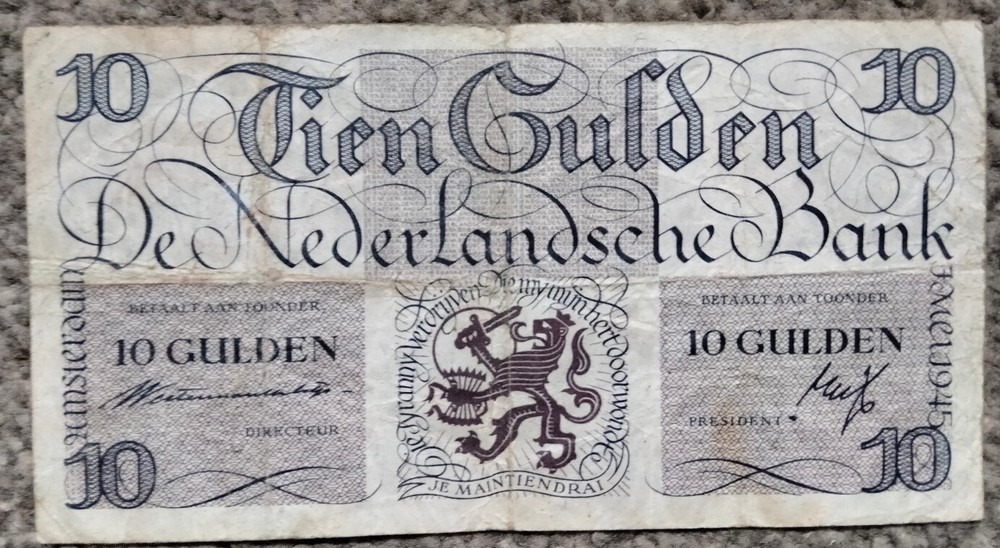 10
10
Tien Gulden
De Nederlandsche Bank
Amsterdam
BETAALT AAN TOONDER
10 GULDEN
DIRECTEUR
10
De tyranny verdrijven Die my mijn hert doorwondt
JE MAINTIENDRAI
BETAALT AAN TOONDER
10 GULDEN
PRESIDENT
10
1945